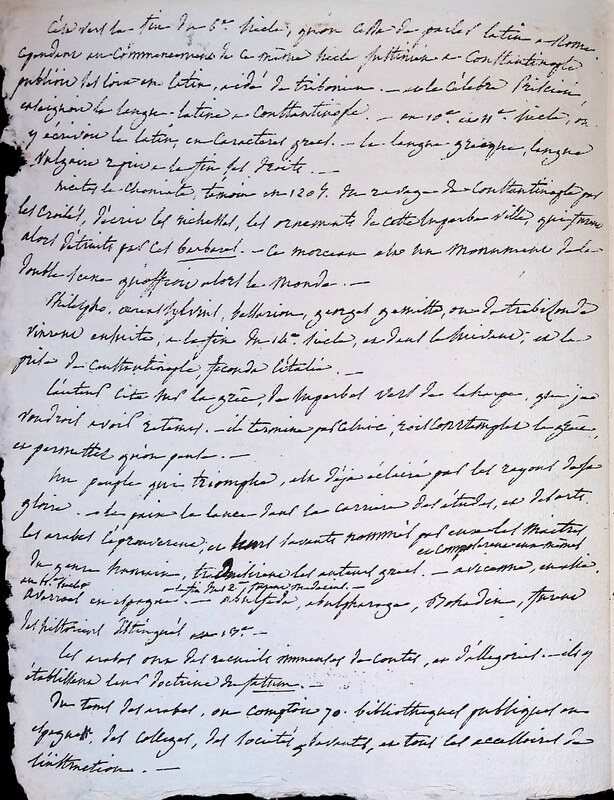 C'est vers la fin du 6.e siècle, qu'on cessa de parler latin a Rome.
cependant au Commencement de ce même siècle justinien a Constantinople
publia des loix en latin, aidé de tribonien. — et le célèbre Priscien
enseignoit la langue latine a Constantinople. — en 10.e et 11.e siècle, on
y écrivoit le latin, en Caractères grecs. — la langue grecque, langue
Vulgaire reprit a la fin ses droits. —
nicetas le choniate, témoin en 1204. du ravage de Constantinople par
les croisés, décrit les richesses, les ornements de cette superbe ville, qui furent
alors détruits par ces barbares. — Ce morceau est un Monument de la
double scene qu'offroit alors le monde. —
Philelphe, bessarion, georges de trebisonde
vinrent ensuite, a la fin du 14.e siècle, et dans le suivant; et la
prise de Constantinople, féconda l'italie. —
l'auteur cite sur la grèce, de superbes vers de laharpe, que je
voudrois avoir retenus. — il termine par contempler la grèce,
et permettez qu'on pleure. —
Un peuple qui triomphe, est déja éclairé par les rayons de sa
gloire. — la paix le lance dans la carriere des études, et des arts.
les arabes l'éprouverent, et leurs savants nommés par eux les Maitres
du genre humain, traduisirent les auteurs grecs. — avicenne, en asie,
et Compterent eux mêmes
averroes en espagne. — abulfeda, abulpharage, Bohadin, furent
des historiens distingués au 13.e —
les arabes ont des recueils immenses de contes, et d'allégories. — ils y
établissent leur doctrine du fatum. —
Du tems des arabes, on comptoit 70. bibliotheques publiques en
espagne, des colleges, des sociétés savantes, et tous les accessoires de
l'instruction. —